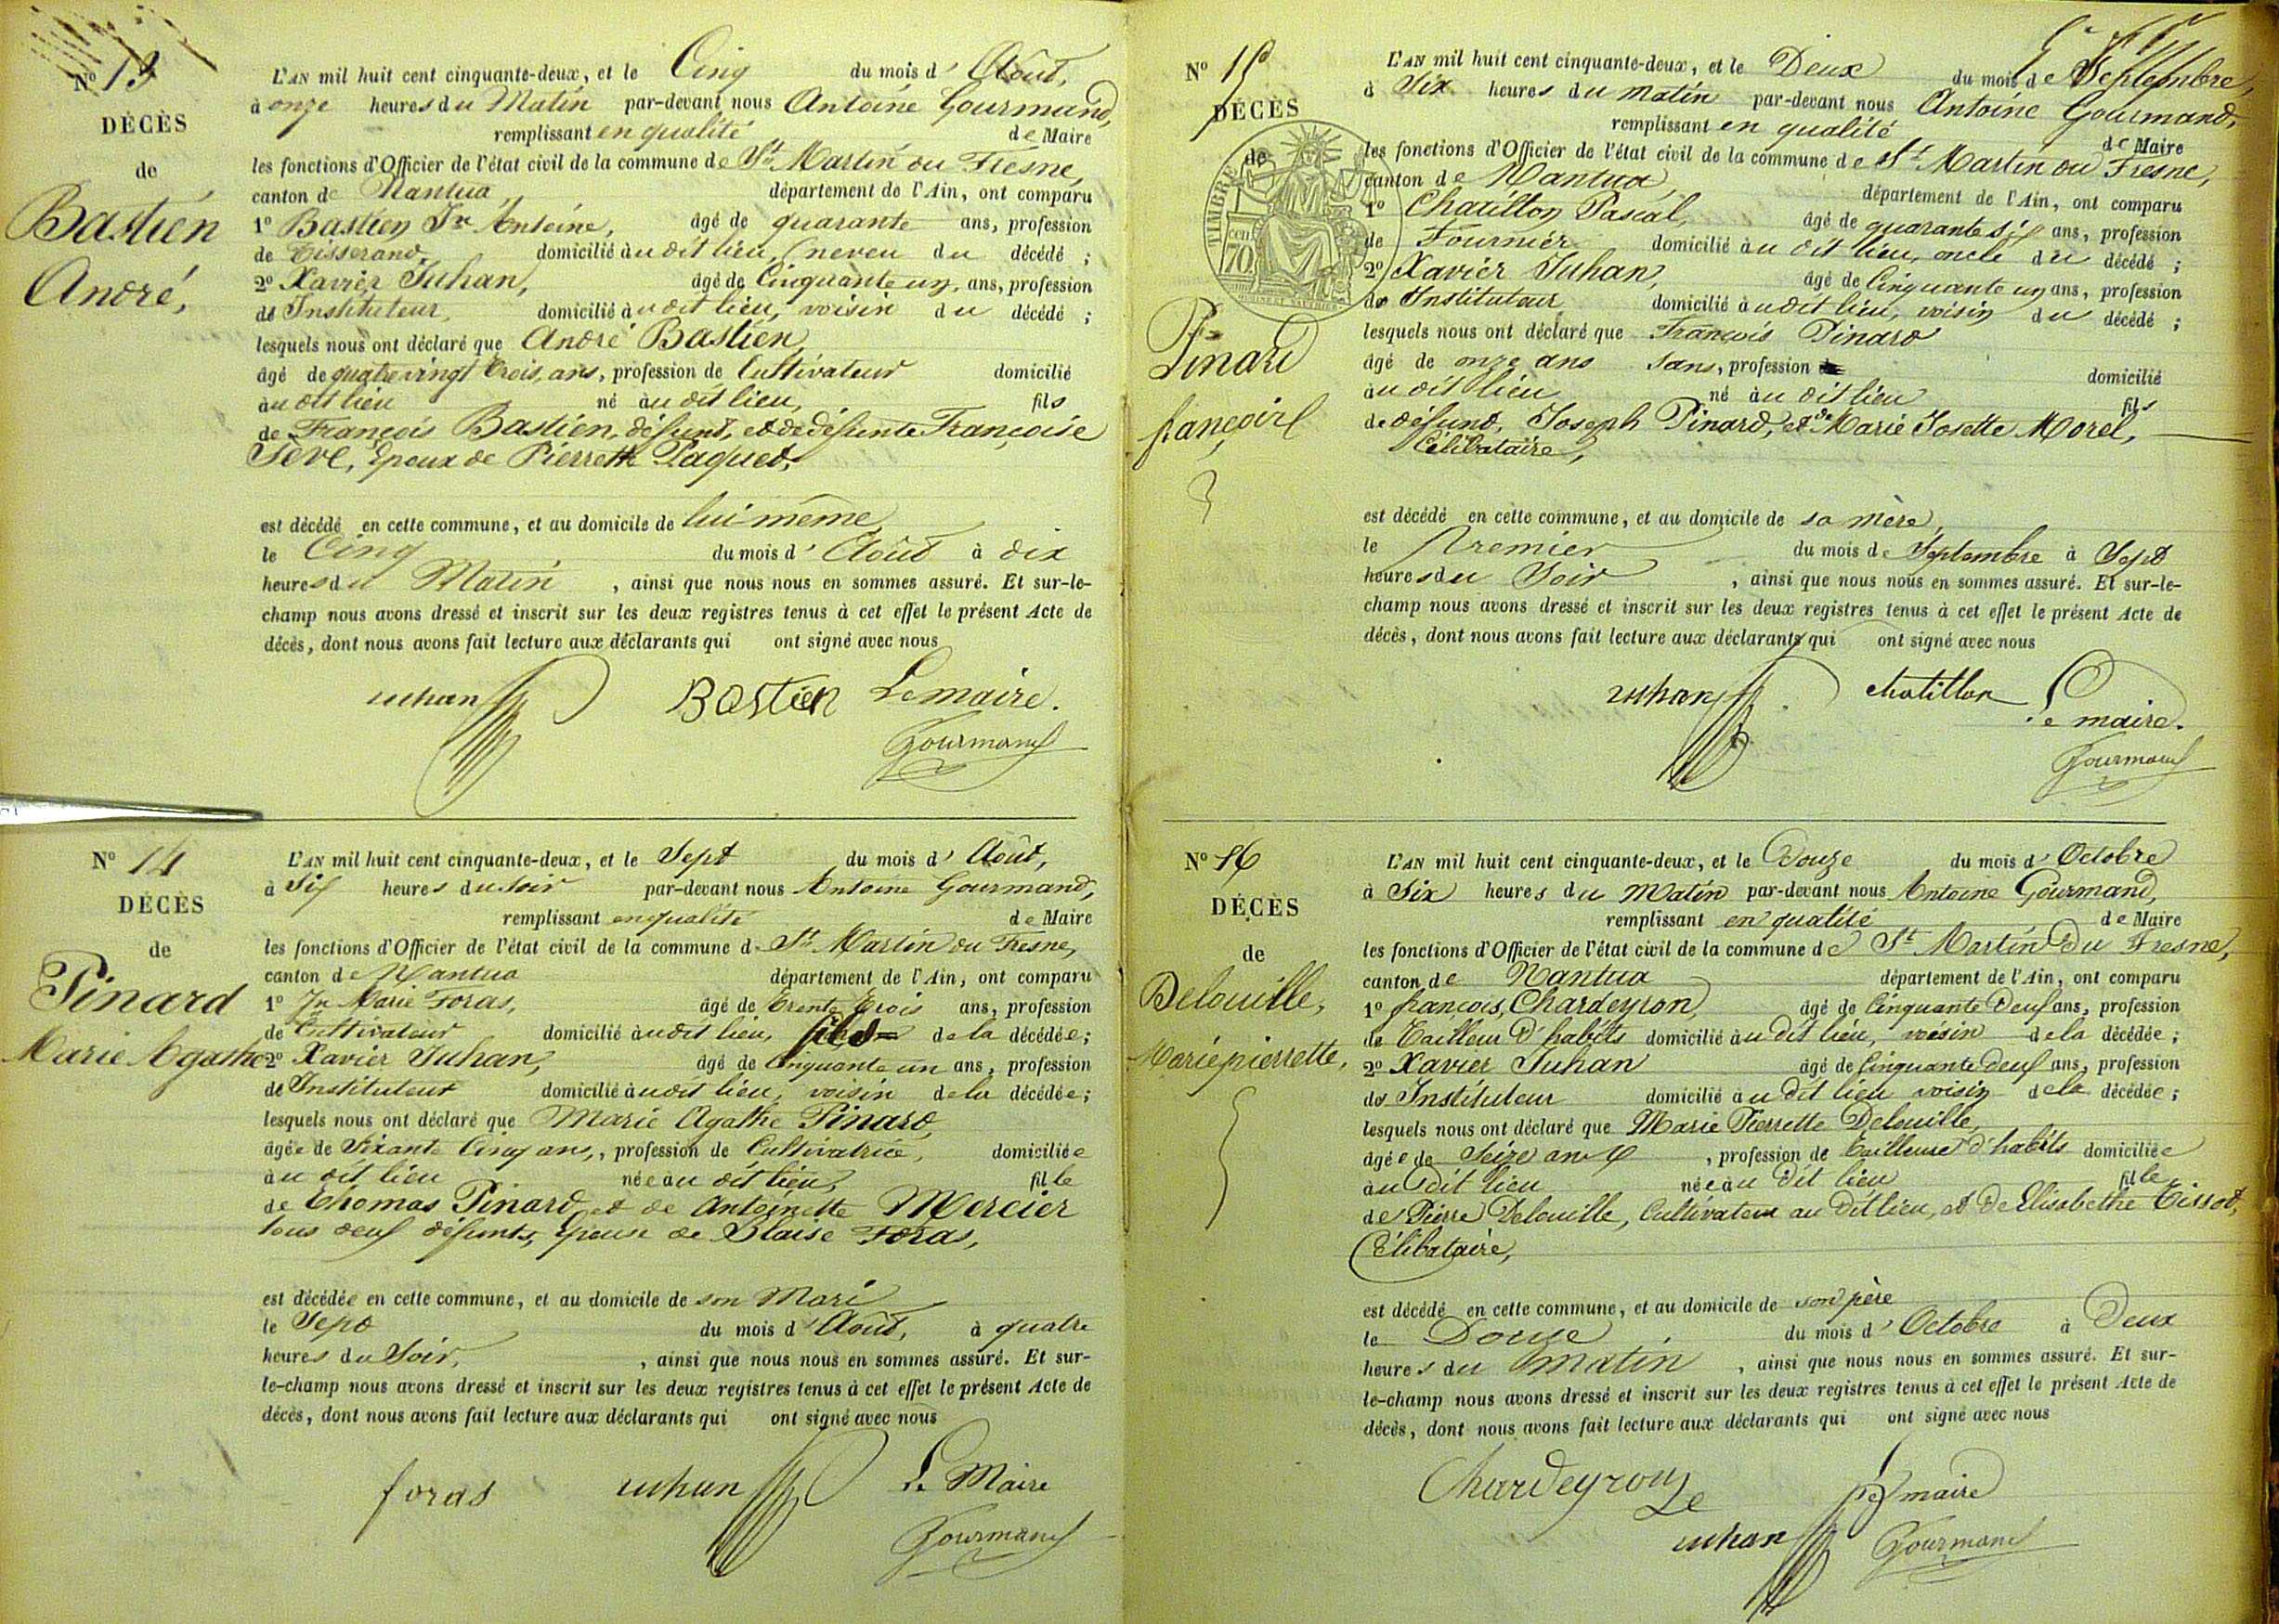 N° 13
DÉCÈS
de
Bastien
André,
L'AN mil huit cent cinquante-deux, et le Cinq du mois d' Août,
à onze heures du Matin par-devant nous Antoine Gourmand,
remplissant en qualité de Maire
les fonctions d'Officier de l'état civil de la commune de St Martin du Fresne,
canton de Nantua, département de l'Ain, ont comparu
1° Bastien Jn Antoine, âgé de quarante ans, profession
de Tisserand, domicilié au dit lieu, neveu du décédé ;
2° Xavier Juhan, âgé de Cinquante un, ans, profession
de Instituteur, domicilié au dit lieu, voisin du décédé ;
lesquels nous ont déclaré que André Bastien,
âgé de quatre vingt trois, ans, profession de Cultivateur domicilié
au dit lieu né au dit lieu, fils
de François Bastien, défunt, et de défunte Françoise
Seve, Epoux de Pierrette Paquet,
est décédé en cette commune, et au domicile de lui-même,
le Cinq du mois d' Août à dix
heures du Matin , ainsi que nous nous en sommes assuré. Et sur-le-
champ nous avons dressé et inscrit sur les deux registres tenus à cet effet le présent Acte de
décès, dont nous avons fait lecture aux déclarants qui ont signé avec nous
Juhan Bastien Le maire.
Gourmand
N° 14
DÉCÈS
de
Pinard
Marie Agathe
L'AN mil huit cent cinquante-deux, et le Sept du mois d' Août,
à Six heures du soir par-devant nous Antoine Gourmand,
remplissant en qualité de Maire
les fonctions d'Officier de l'état civil de la commune d St Martin du Fresne,
canton de Nantua département de l'Ain, ont comparu
1° Jn Marie Foras, âgé de trente trois ans, profession
de Cultivateur domicilié au dit lieu, fils de la décédée ;
2° Xavier Juhan, âgé de Cinquante un ans, profession
de Instituteur domicilié au dit lieu, voisin de la décédée ;
lesquels nous ont déclaré que Marie Agathe Pinard,
âgée de Sixante Cinq ans, , profession de Cultivatrice, domiciliée
au dit lieu née au dit lieu, fille
de Thomas Pinard et de Antoinette Mercier
tous deux défunts, Epouse de Blaise Foras,
est décédée en cette commune, et au domicile de son Mari
le Sept du mois d' Août, à quatre
heures du Soir, , ainsi que nous nous en sommes assuré. Et sur-
le-champ nous avons dressé et inscrit sur les deux registres tenus à cet effet le présent Acte de
décès, dont nous avons fait lecture aux déclarants qui ont signé avec nous
foras Juhan Le Maire
Gourmand
N° 15
DÉCÈS
de
TIMBRE
cen
70
Pinard
françois
L'AN mil huit cent cinquante-deux, et le Deux du mois de Septembre,
à Six heures du matin par-devant nous Antoine Gourmand,
remplissant en qualité de Maire
les fonctions d'Officier de l'état civil de la commune de St Martin du Fresne,
canton de Nantua, département de l'Ain, ont comparu
1° Chatillon Pascal, âgé de quarante six ans, profession
de Fournier domicilié au dit lieu, oncle du décédé ;
2° Xavier Juhan, âgé de Cinquante un ans, profession
de Instituteur domicilié au dit lieu, voisin du décédé ;
lesquels nous ont déclaré que François Pinard
âgé de onze ans sans, profession domicilié
au dit lieu né au dit lieu fils
de défunt, Joseph Pinard, et de Marie Josette Morel,
Célibataire,
est décédé en cette commune, et au domicile de sa mère,
le Premier du mois de Septembre à Sept
heures du Soir , ainsi que nous nous en sommes assuré. Et sur-le-
champ nous avons dressé et inscrit sur les deux registres tenus à cet effet le présent Acte de
décès, dont nous avons fait lecture aux déclarants qui ont signé avec nous
Juhan chatillon Le maire.
Gourmand
N° 16
DÉCÈS
de
Delouille,
Marie pierrette,
L'AN mil huit cent cinquante-deux, et le Douze du mois d' Octobre
à Six heures du Matin par-devant nous Antoine Gourmand,
remplissant en qualité de Maire
les fonctions d'Officier de l'état civil de la commune de St Martin Du Fresne,
canton de Nantua département de l'Ain, ont comparu
1° françois, Chardeyron, âgé de Cinquante Deux ans, profession
de Tailleur d'habits domicilié au dit lieu, voisin de la décédée ;
2° Xavier Juhan âgé de Cinquante deux ans, profession
de Instituteur domicilié au dit lieu voisin de la décédée ;
lesquels nous ont déclaré que Marie Pierrette Delouille,
âgée de Seize ans , profession de tailleuse d'habits domiciliée
au dit lieu née au dit lieu fille
de Pierre Delouille, Cultivateur au dit lieu, et De Elisabethe Tissot,
Célibataire,
est décédé en cette commune, et au domicile de son père
le Douze du mois d' Octobre à Deux
heures du Matin , ainsi que nous nous en sommes assuré. Et sur-
le-champ nous avons dressé et inscrit sur les deux registres tenus à cet effet le présent Acte de
décès, dont nous avons fait lecture aux déclarants qui ont signé avec nous
Chardeyron Le maire
Juhan Gourmand